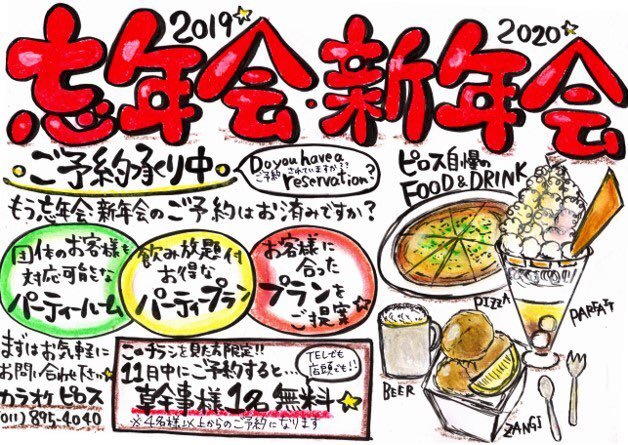 2019
2020
忘年会・新年会
ご予約承り中
Do you have a
ご予約されていますか??
reservation?
もう忘年会・新年会のご予約はお済みですか?
団体のお客様も
対応可能な
パーティールーム
飲み放題付
お得な
パーティプラン
お客様に
合った
プランを
ご提案
ピロス自慢の
FOOD & DRINK
PIZZA
PARFAIT
BEER
ZANGI
まずはお気軽に
お問い合わせ下さい
カラオケピロス
(011) 895-4040
このチラシを見た方限定!!
11月中にご予約すると…
TELでも
店頭でも!!
幹事様1名無料
※4名様以上からのご予約になります